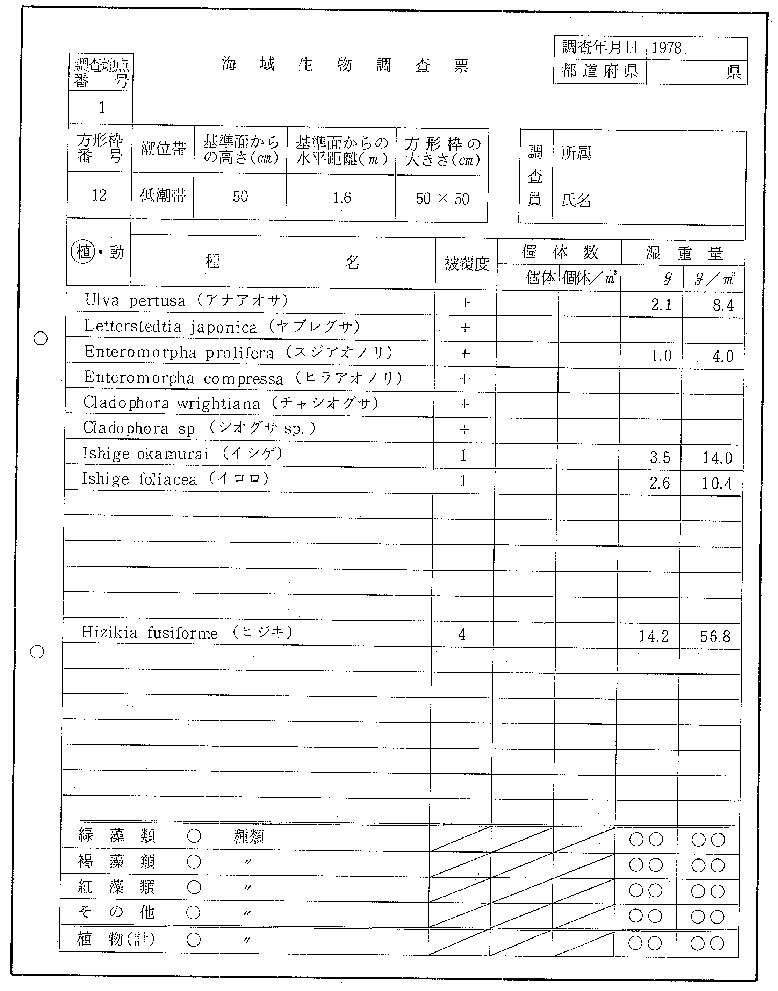 海域生物調査票
調査年月日 1978.
都道府県 県
調査地点番号
1
方形枠番号 潮位帯 基準面からの高さ(cm) 基準面からの水平距離(m) 方形枠の大きさ(cm)
12 低潮帯 50 1.6 50 × 50
調査員 所属
氏名
植・動 種名 被覆度 個体数 湿重量
個体 個体/m² g g/m²
Ulva pertusa (アナアオサ) + 2.1 8.4
Letterstedtia japonica (ヤブレグサ) +
Enteromorpha prolifera (スジアオノリ) + 1.0 4.0
Enteromorpha compressa (ヒラアオノリ) +
Cladophora wrightiana (チャシオグサ) +
Cladophora sp (シオグサ sp.) +
Ishige okamurai (イシゲ) 1 3.5 14.0
Ishige foliacea (イロロ) 1 2.6 10.4
Hizikia fusiforme (ヒジキ) 4 14.2 56.8
緑藻類 ○ 種類 ○○ ○○
褐藻類 ○ 〃 ○○ ○○
紅藻類 ○ 〃 ○○ ○○
その他 ○ 〃 ○○ ○○
植物(計) ○ 〃 ○○ ○○